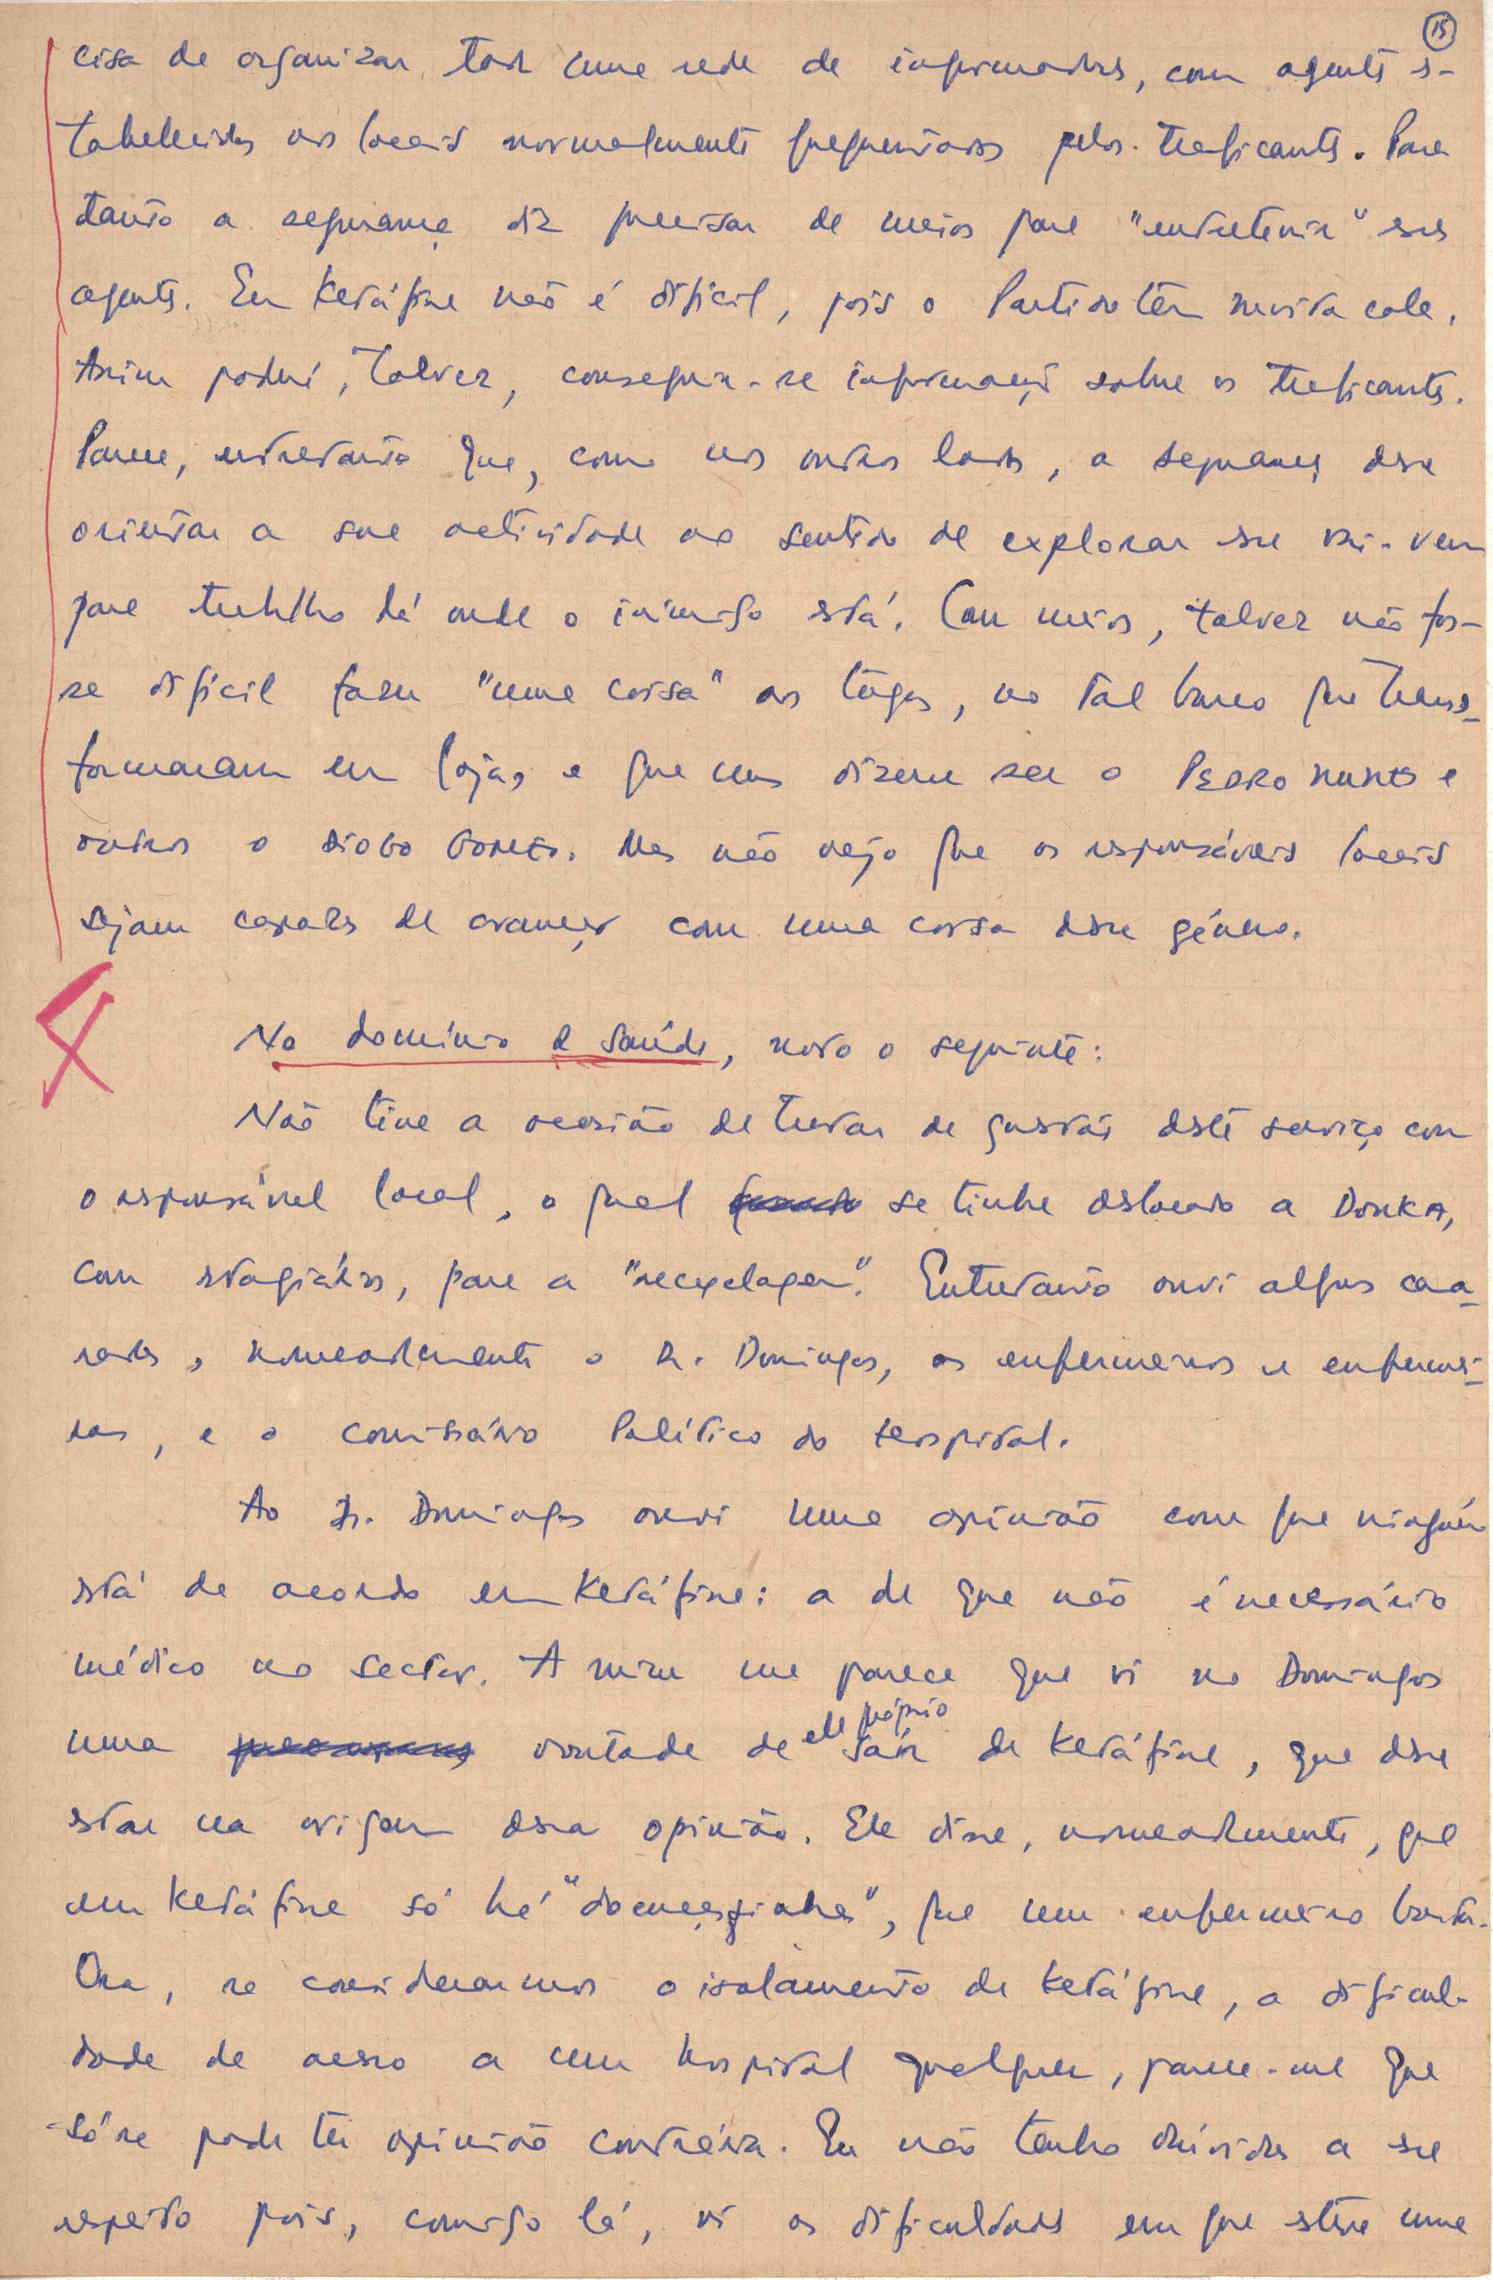 15
cisa de organizar toda uma rede de informadores, com agentes es-
tabelecidos nos locais normalmente frequentados pelos traficantes. Para
tanto a segurança diz precisar de meios para "entreter" esses
agentes. Em Ketáfine não é difícil, pois o Partido tem muita cola.
Assim poderá, talvez, conseguir-se informações sobre os traficantes.
Parece, entretanto que, como nos outros lados, a segurança deve
orientar a sua actividade no sentido de explorar esse vai-vem
para trabalho lá onde o inimigo está. Com meios, talvez não fos-
se difícil fazer "uma coisa" aos tugas, no tal barco que trans-
formaram em loja, e que uns dizem ser o PEDRO NUNES e
outros o DIOGO GOMES. Mas não vejo que os responsáveis locais
sejam capazes de avançar com uma coisa desse género.
No domínio da saúde, noto o seguinte:
Não tive a ocasião de tratar de questões deste serviço com
o responsável local, o qual se tinha deslocado a Donka,
com estagiários, para a "recyclagem". Entretanto ouvi alguns cama-
radas, nomeadamente o Dr. Domingos, os enfermeiros e enfermei-
ras, e o comissário Político do hospital.
Ao Dr. Domingos ouvi uma opinião com que ninguém
está de acordo em Ketáfine: a de que não é necessário
médico no sector. A mim me parece que vi no Domingos
uma vontade de ele próprio sair de Ketáfine, que deve
estar na origem dessa opinião. Ele disse, nomeadamente, que
em Ketáfine só há "doencazinhas", que um enfermeiro basta.
Ora, se considerarmos o isolamento de Ketáfine, a dificul-
dade de acesso a um hospital qualquer, parece-me que
só se pode ter opinião contrária. Eu não tenho dúvidas a esse
respeito pois, comigo lá, vi as dificuldades em que esteve uma